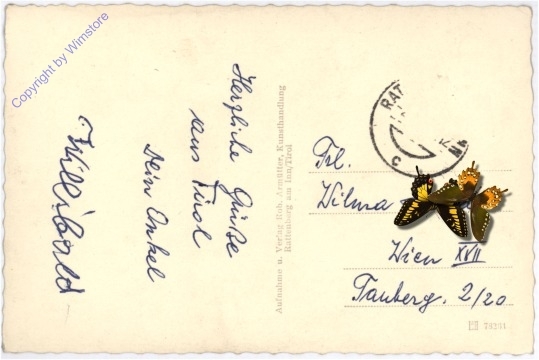 Copyright by Wimstore
Herzliche Grüße
aus Tirol
Dein Enkel
Willibald
Aufnahme u. Verlag Rob. Armüller, Kunsthandlung
Rattenberg am Inn/Tirol
RAT
Frl.
Wilma
Wien XVII
Tauberg. 2/20
78261